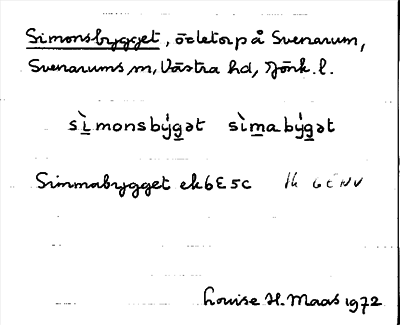 Simonsbygget, ödetorp å Svenarum,
Svenarums sn, Västra hd, Jönk. l.
sìmonsbýgət sìmabýgət
Simmabygget ek 6E5c
Louise H. Maas 1972